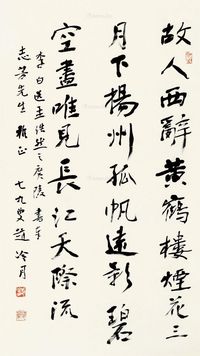 故人西辭黃鶴樓煙花三
月下楊州孤帆遠影碧
空盡唯見長江天際流
李白送孟浩然之廣陵 書奉
志芳先生 雅正 七九叟趙冷月